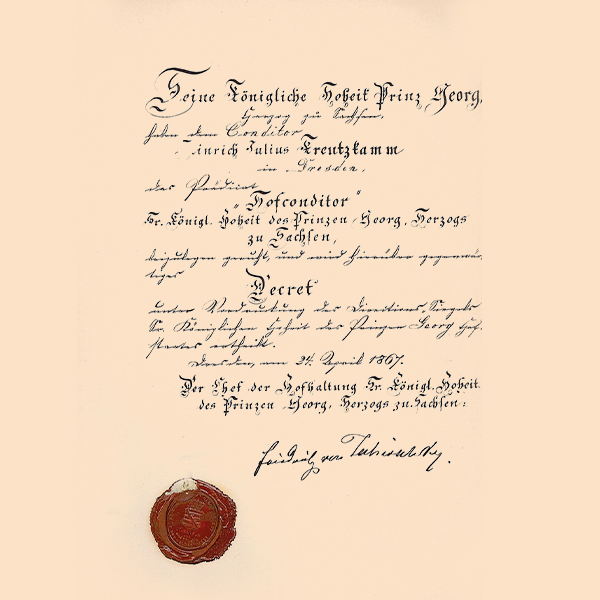 Seine Königliche Hoheit Prinz Georg,
Herzog zu Sachsen,
haben dem Conditor
inrich Julius Kreutzkamm
in Dresden,
das Prädicat
„Hofconditor"
Sr. Königl. Hoheit des Prinzen Georg, Herzogs
zu Sachsen,
beizulegen geruht, und wird hierüber gegenwär-
tiges
Decret
unter Vordruckung des Directions-Siegels
Sr. Königlichen Hoheit des Prinzen Georg Hof-
staates ertheilt.
Dresden, am 24. April 1867.
Der Chef der Hofhaltung Sr. Königl. Hoheit
des Prinzen Georg, Herzogs zu Sachsen:
Friedrich von